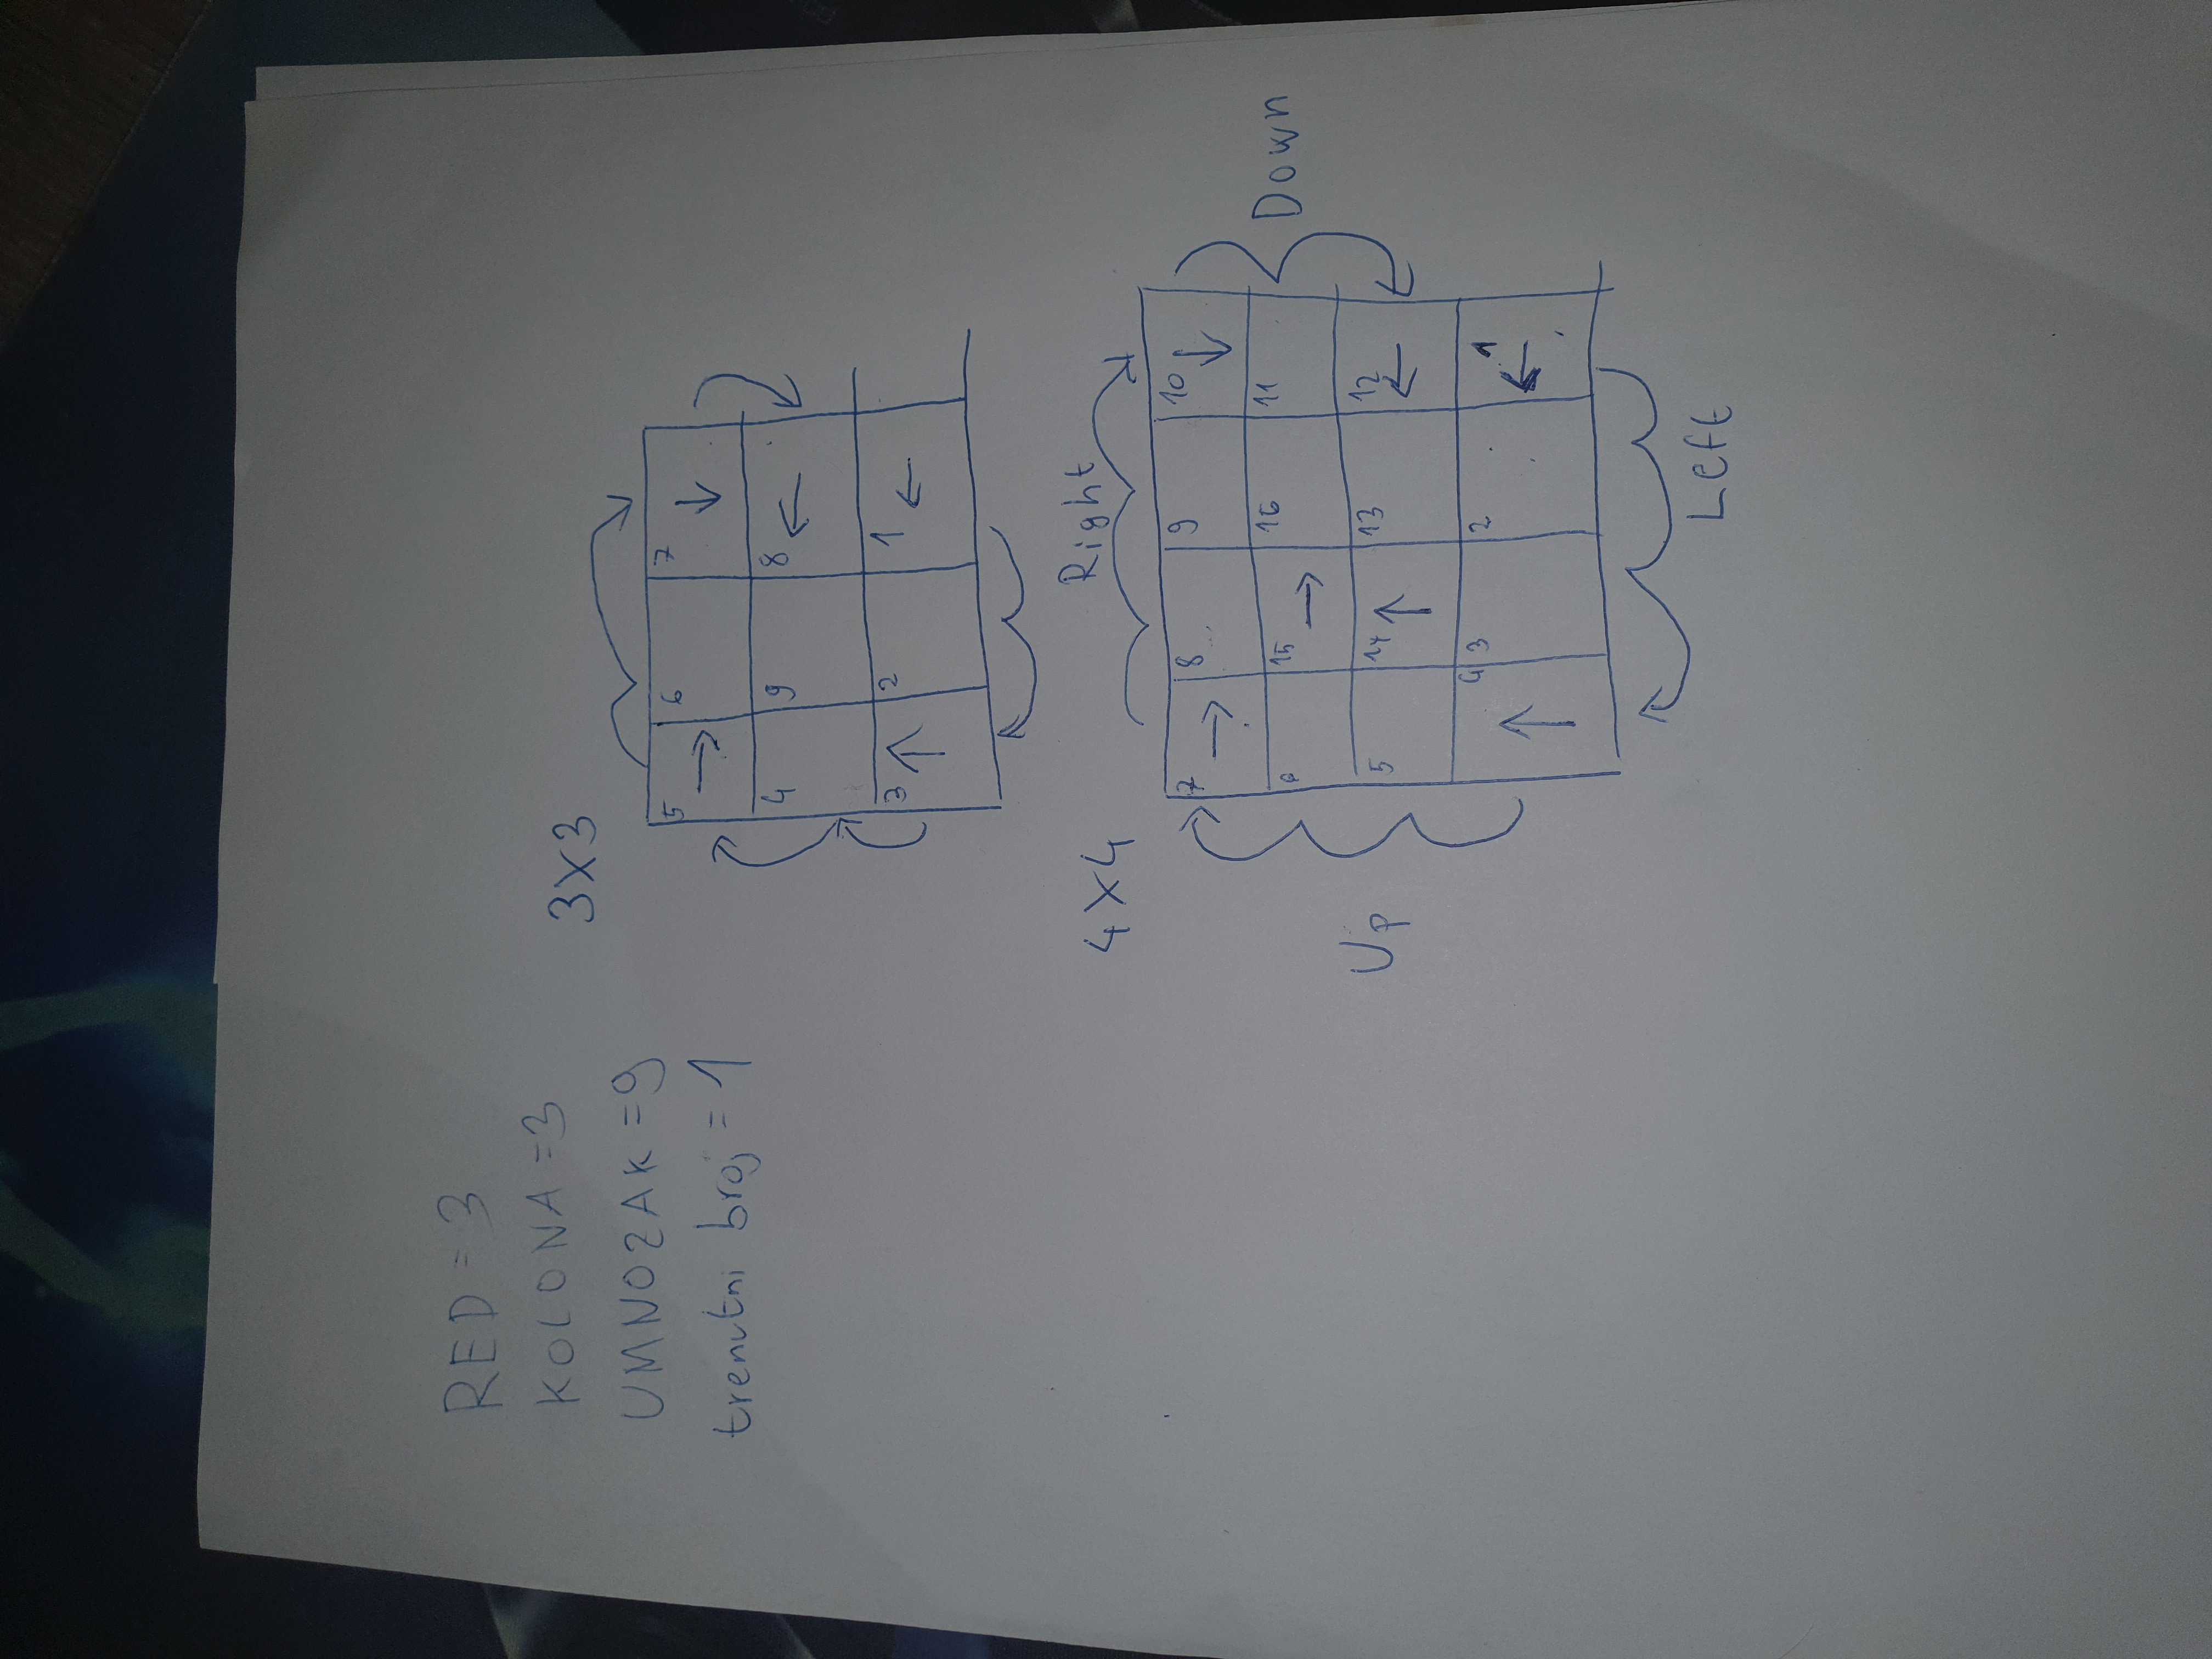 RED = 3
KOLONA = 3
UMNOZAK = 9
trenutni broj = 1
3X3
5 → 6 7 ↓
4 9 8 ←
3 ↑ 2 1 ←
4X4
Right
7 → 8 9 10 ↓
Down
6 15 → 16 11
Up
5 14 ↑ 13 12 ←
4 ↑ 3 2 1 ←
Left